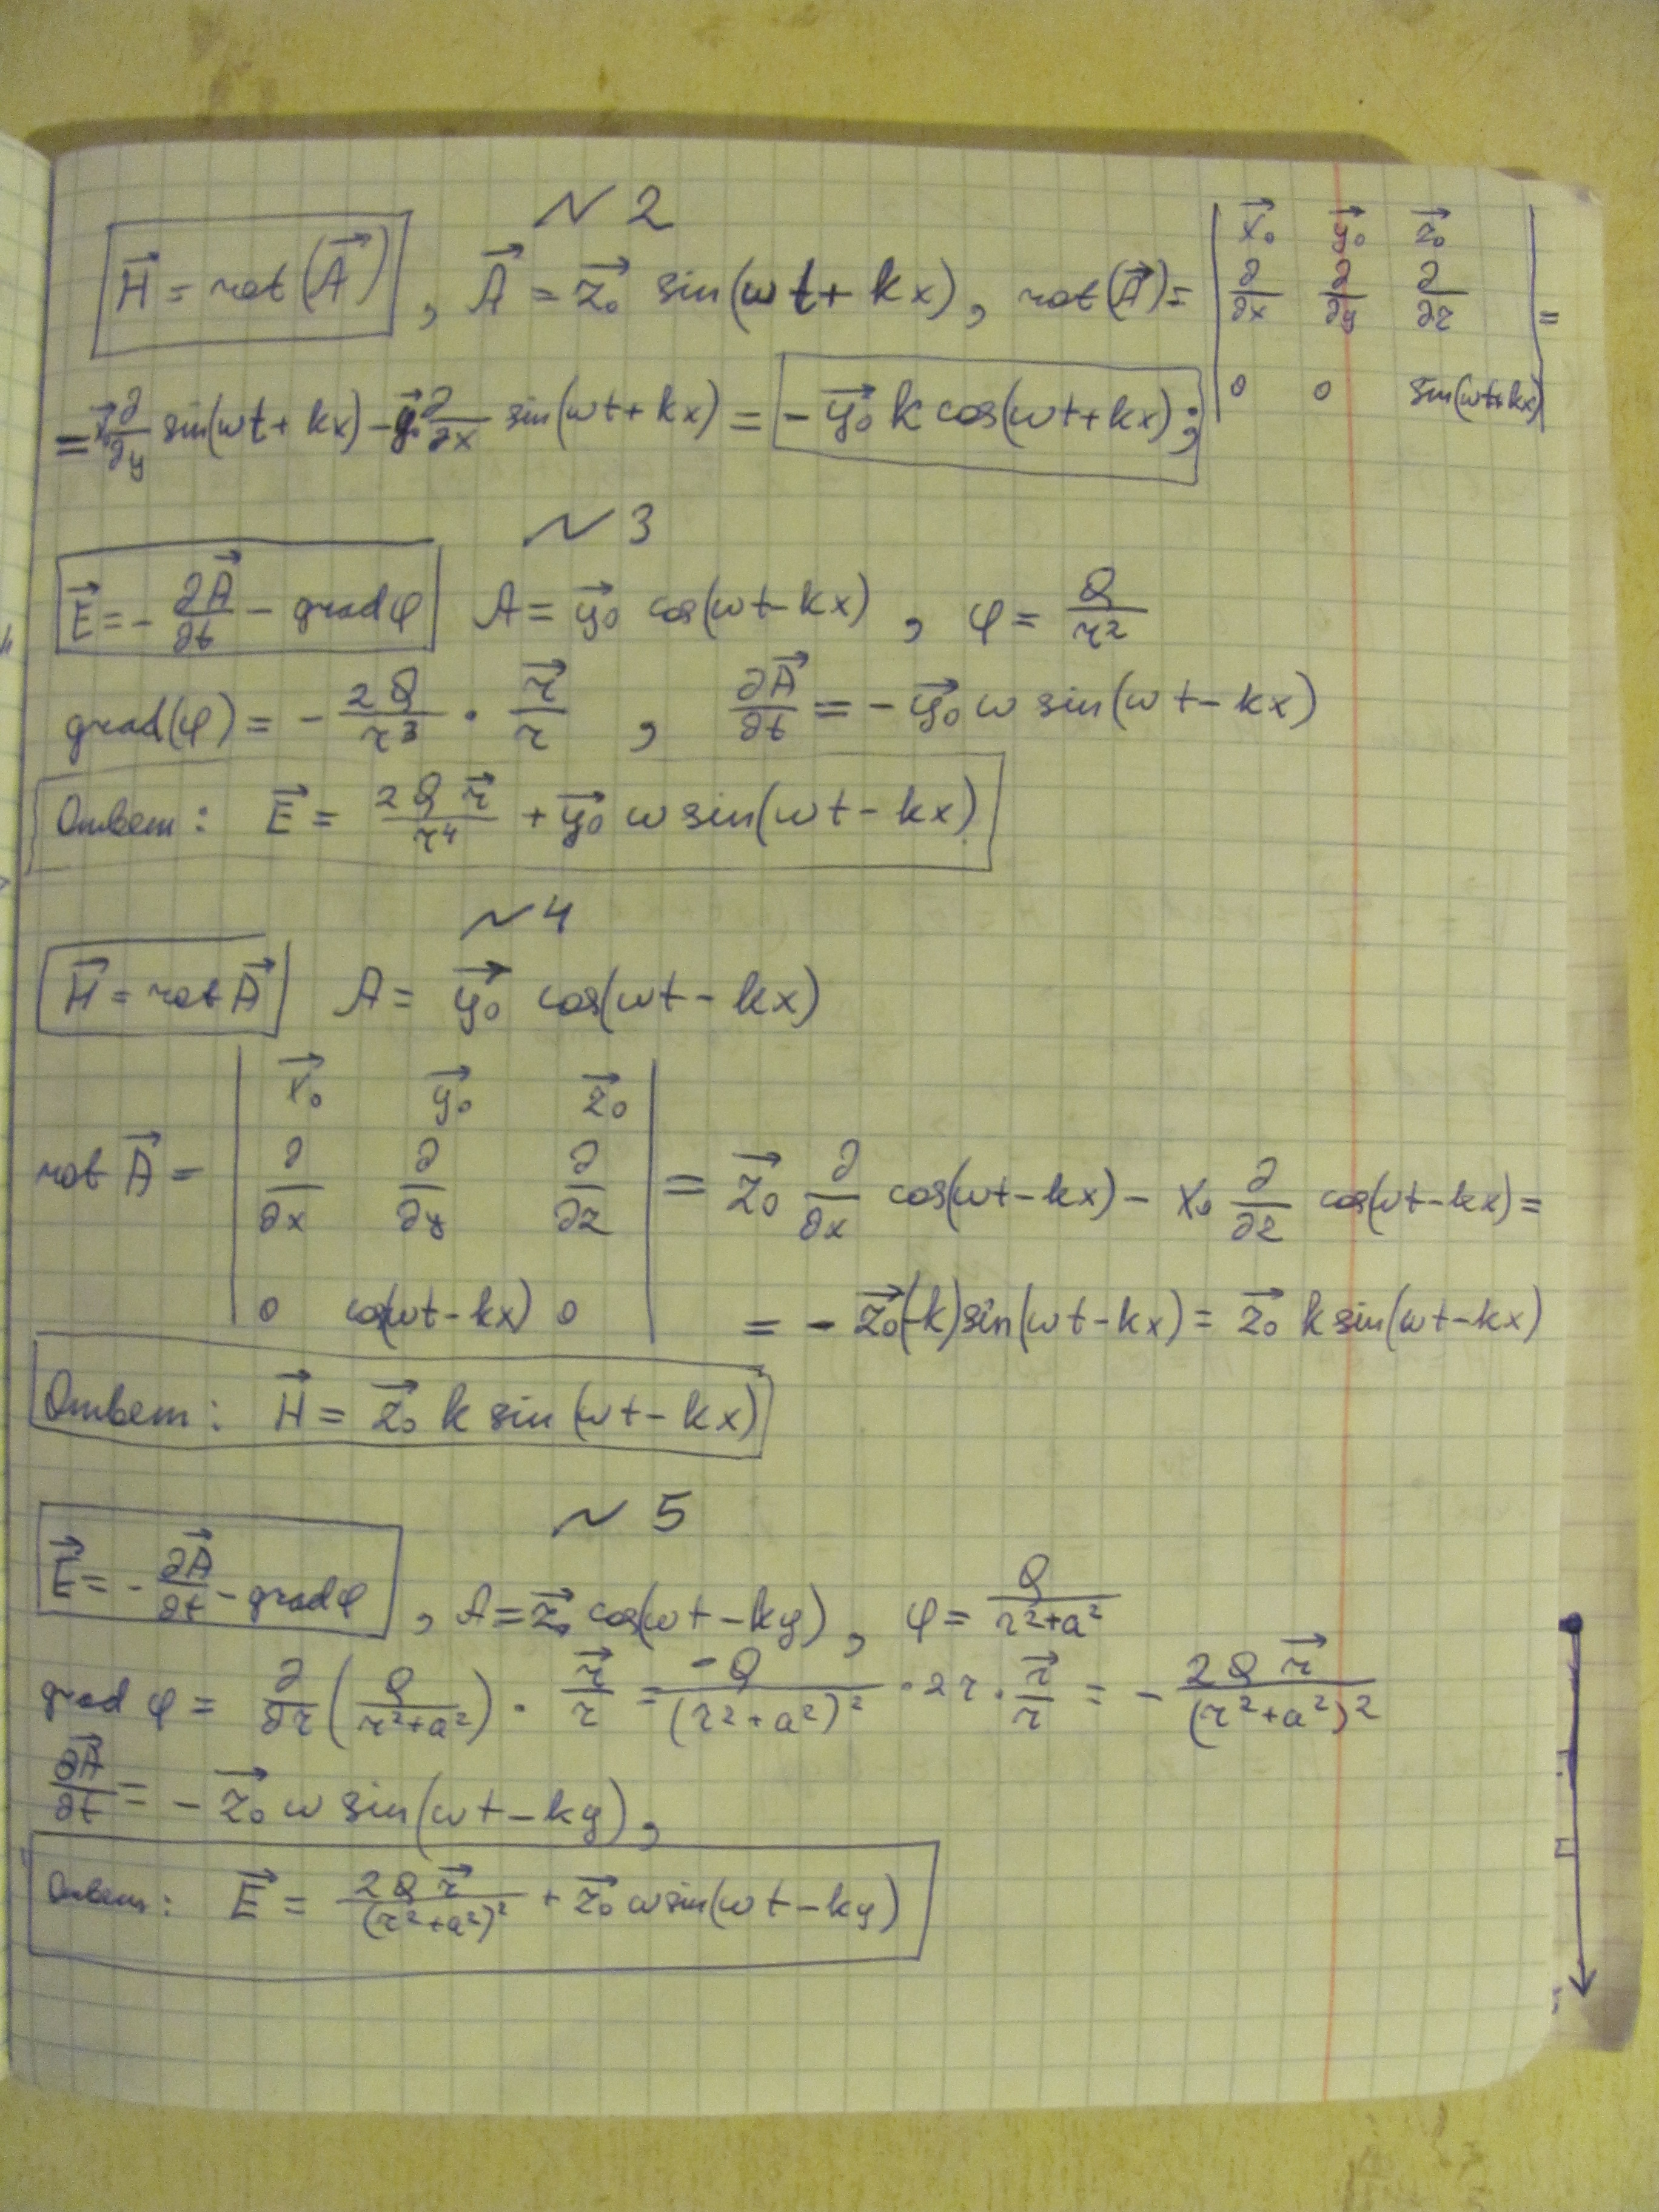 N 2
H⃗ = rot(A⃗), A⃗ = z⃗₀ sin(ωt + kx), rot(A⃗) = | x⃗₀ y⃗₀ z⃗₀ |
| ∂/∂x ∂/∂y ∂/∂z | =
| 0 0 sin(ωt+kx) |
= x⃗₀ ∂/∂y sin(ωt + kx) – y⃗₀ ∂/∂x sin(ωt + kx) = – y⃗₀ k cos(ωt+kx);
N 3
E⃗ = – ∂A⃗/∂t – grad φ A = y⃗₀ cos(ωt – kx), φ = Q/r²
grad(φ) = – 2Q/r³ · r⃗/r, ∂A⃗/∂t = – y⃗₀ ω sin(ωt – kx)
Ответ: E⃗ = 2Q r⃗/r⁴ + y⃗₀ ω sin(ωt – kx)
N 4
H⃗ = rot A⃗ A = y⃗₀ cos(ωt – kx)
| x⃗₀ y⃗₀ z⃗₀ |
rot A⃗ = | ∂/∂x ∂/∂y ∂/∂z | = z⃗₀ ∂/∂x cos(ωt – kx) – x₀ ∂/∂z cos(ωt – kx) =
| 0 cos(ωt – kx) 0 | = – z⃗₀(-k)sin(ωt – kx) = z⃗₀ k sin(ωt – kx)
Ответ: H⃗ = z⃗₀ k sin(ωt – kx)
N 5
E⃗ = – ∂A⃗/∂t – grad φ, A = z⃗₀ cos(ωt – ky), φ = Q/(r²+a²)
grad φ = ∂/∂r (Q/(r²+a²)) · r⃗/r = –Q/(r²+a²)² · 2r · r⃗/r = – 2Q r⃗/(r²+a²)²
∂A⃗/∂t = – z⃗₀ ω sin(ωt – ky),
Ответ: E⃗ = 2Q r⃗/(r²+a²)² + z⃗₀ ω sin(ωt – ky)